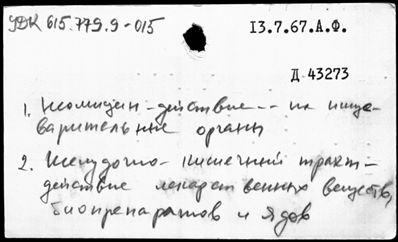 УДК 615.779.9-015
13.7.67.А.Ф.
Д 43273
1. Неомицин - действие -- на пище-
варительные органы
2. Желудочно-кишечный тракт -
действие лекарственных веществ,
биопрепаратов и ядов